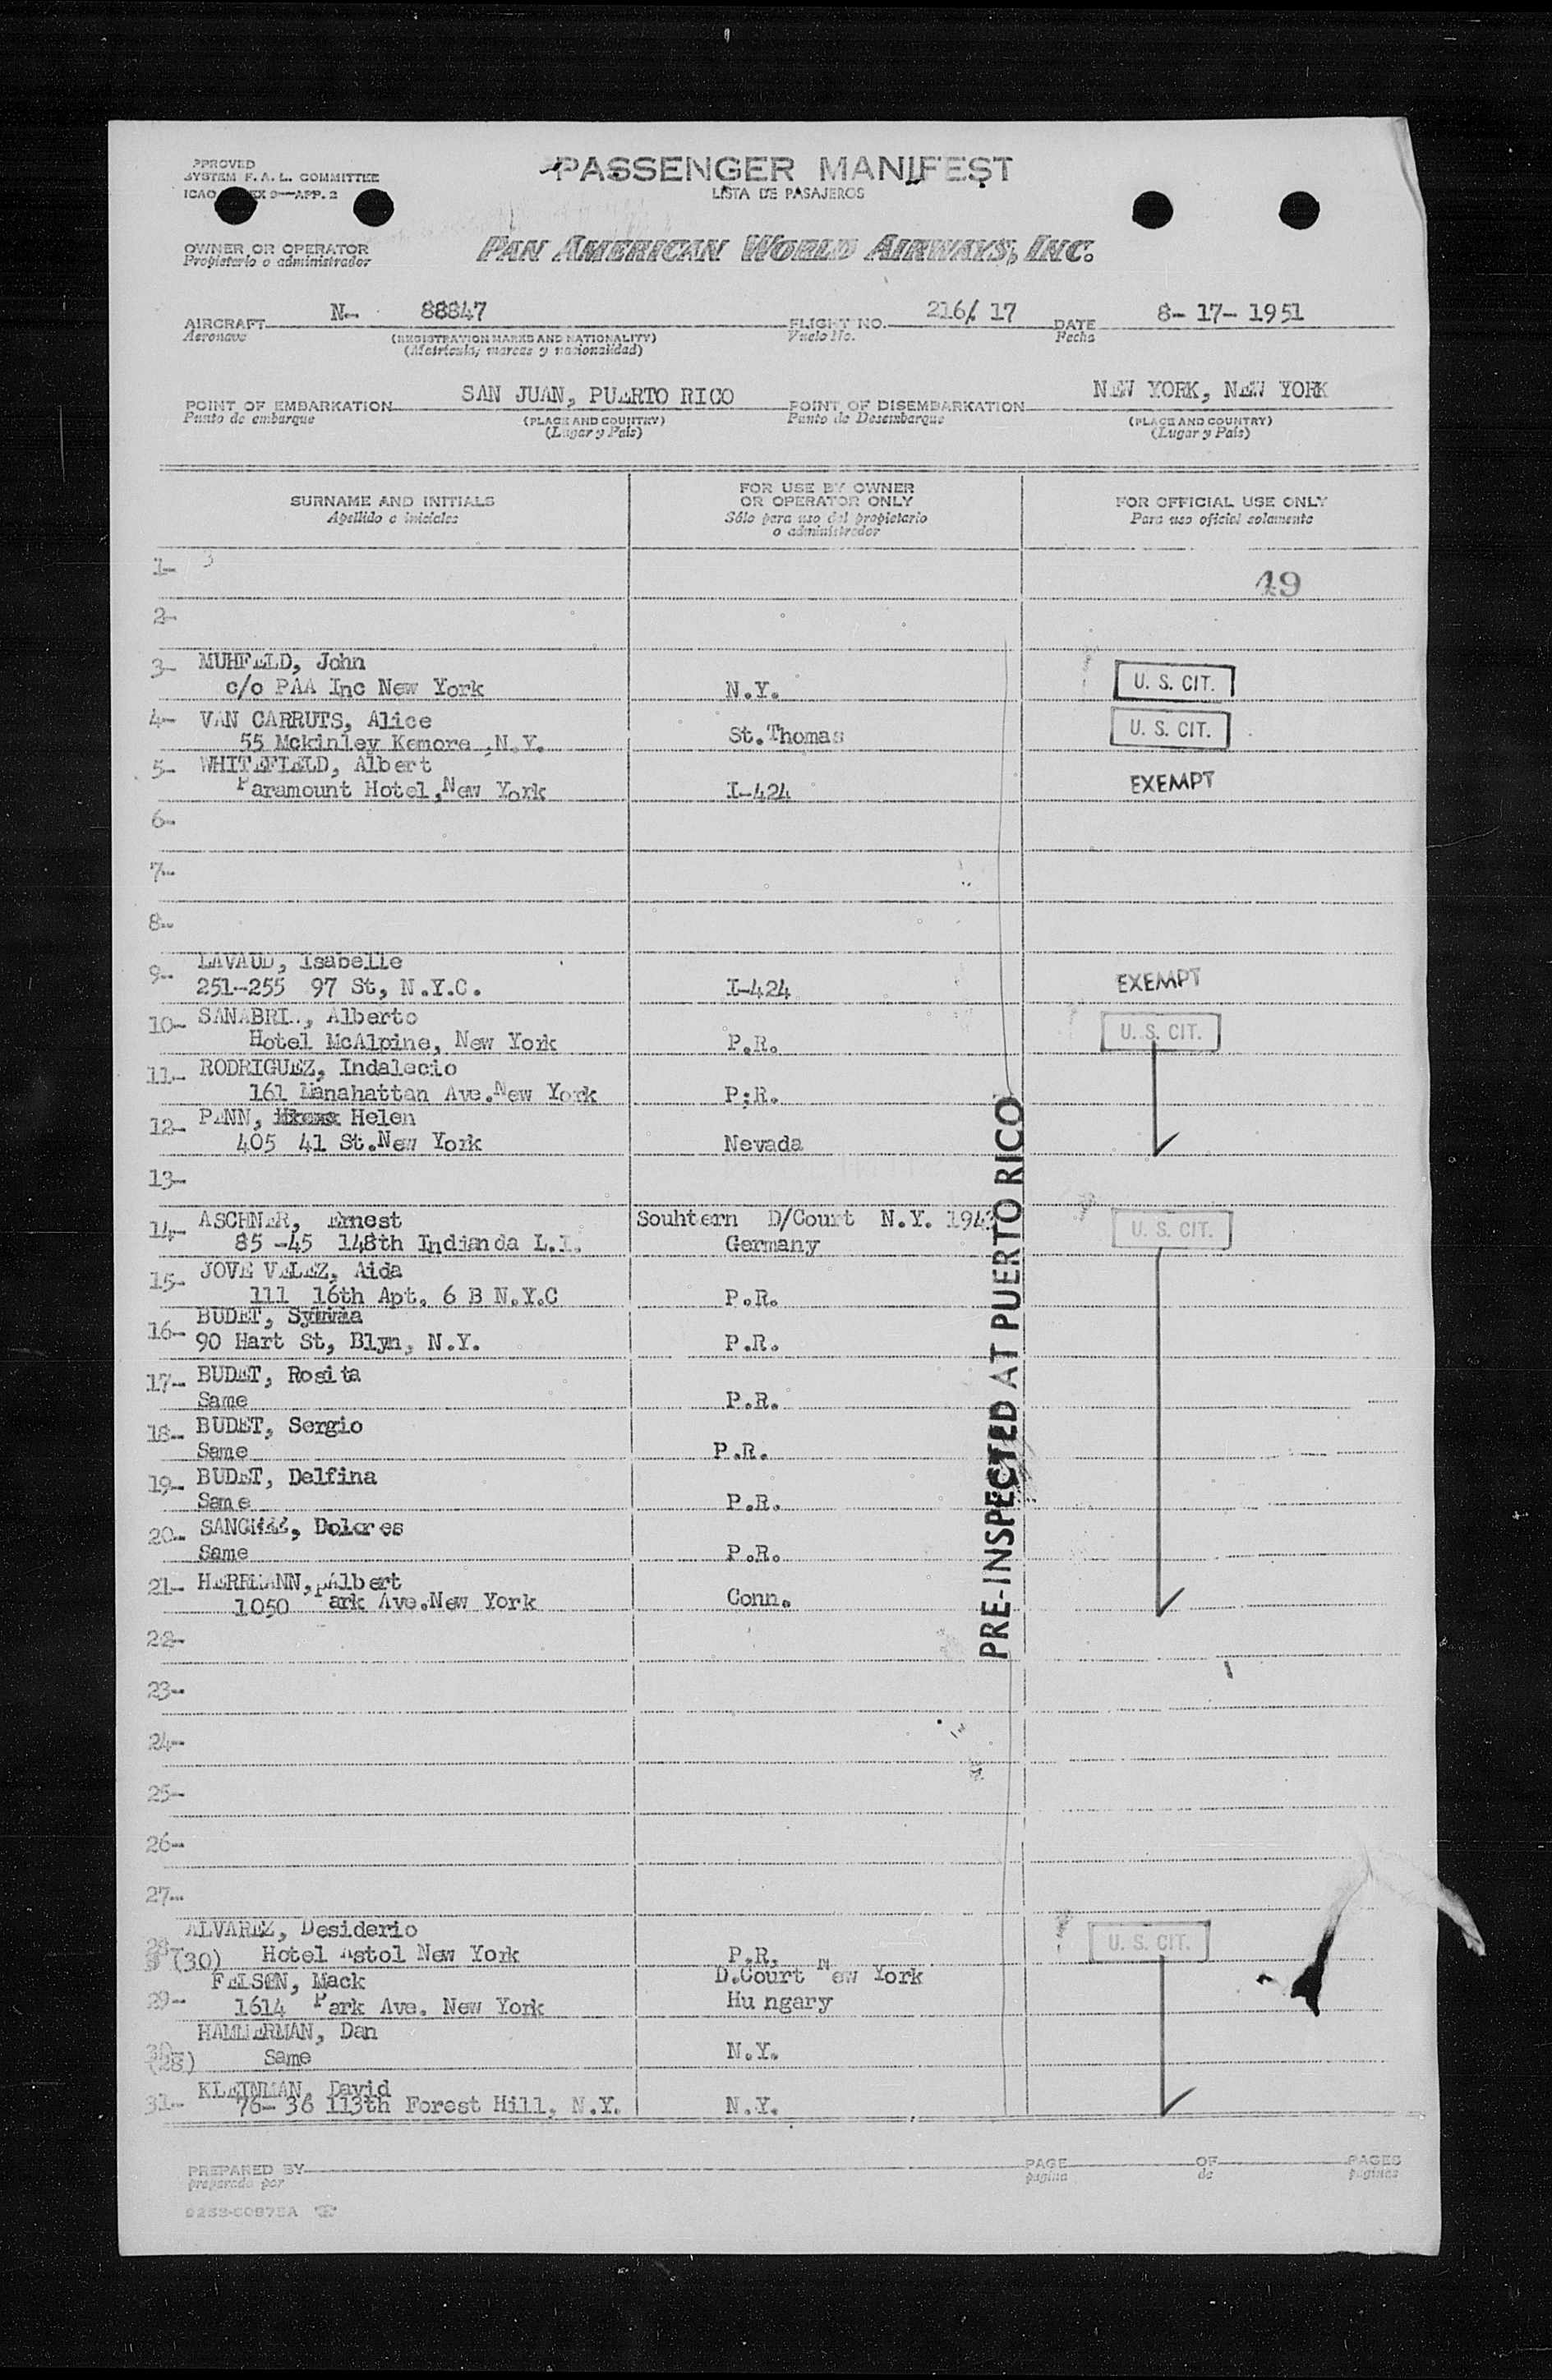 PPROVED
SYSTEM F. A. L. COMMITTEE
ICAO EX 9—APP. 2
PASSENGER MANIFEST
LISTA DE PASAJEROS
OWNER OR OPERATOR
Propietario o administrador
PAN AMERICAN WORLD AIRWAYS, INC.
AIRCRAFT N- 88847 FLIGHT NO. 216/ 17 DATE 8- 17- 1951
Aeronave (REGISTRATION MARKS AND NATIONALITY) Vuelo No. Fecha
(Matricula, marcas y nacionalidad)
POINT OF EMBARKATION SAN JUAN, PUERTO RICO POINT OF DISEMBARKATION NEW YORK, NEW YORK
Punto de embarque (PLACE AND COUNTRY) Punto de Desembarque (PLACE AND COUNTRY)
(Lugar y País) (Lugar y País)
SURNAME AND INITIALS
Apellido e iniciales
FOR USE BY OWNER
OR OPERATOR ONLY
Sólo para uso del propietario
o administrador
FOR OFFICIAL USE ONLY
Para uso oficial solamente
1-
49
2-
3- MUHFELD, John
c/o PAA Inc New York N.Y. U. S. CIT.
4- VAN CARRUTS, Alice
55 Mckinley Kemore ,N.Y. St.Thomas U. S. CIT.
5- WHITEFIELD, Albert
Paramount Hotel,New York I-424 EXEMPT
6-
7-
8-
9- LAVAUD, Isabelle
251-255 97 St, N.Y.C. I-424 EXEMPT
10- SANABRI., Alberto
Hotel McAlpine, New York P.R. U. S. CIT.
11- RODRIGUEZ, Indalecio
161 Manahattan Ave.New York P:R.
12- PENN, Helen
405 41 St.New York Nevada
13-
14- ASCHNER, Ernest Souhtern D/Court N.Y. 194
85 -45 148th Indianda L.I. Germany U. S. CIT.
15- JOVE VELEZ, Aida
111 16th Apt. 6 B N.Y.C P.R.
16- BUDET,
90 Hart St, Blyn, N.Y. P.R.
17- BUDET, Rosita
Same P.R.
18- BUDET, Sergio
Same P.R.
19- BUDET, Delfina
Same P.R.
20- Dolores
Same P.R.
21- HERRMANN, Albert
1050 Park Ave.New York Conn.
PRE-INSPECTED AT PUERTO RICO
22-
23-
24-
25-
26-
27-
ALVAREZ, Desiderio
28- (30) Hotel Astol New York P.R. U. S. CIT.
FELSON, Mack D.Court New York
29- 1614 Park Ave. New York Hu ngary
HAMMERMAN, Dan
30- (28) Same N.Y.
KLEINMAN, David
31- 76- 36 113th Forest Hill, N.Y. N.Y.
PREPARED BY PAGE OF PAGES
preparado por página de páginas